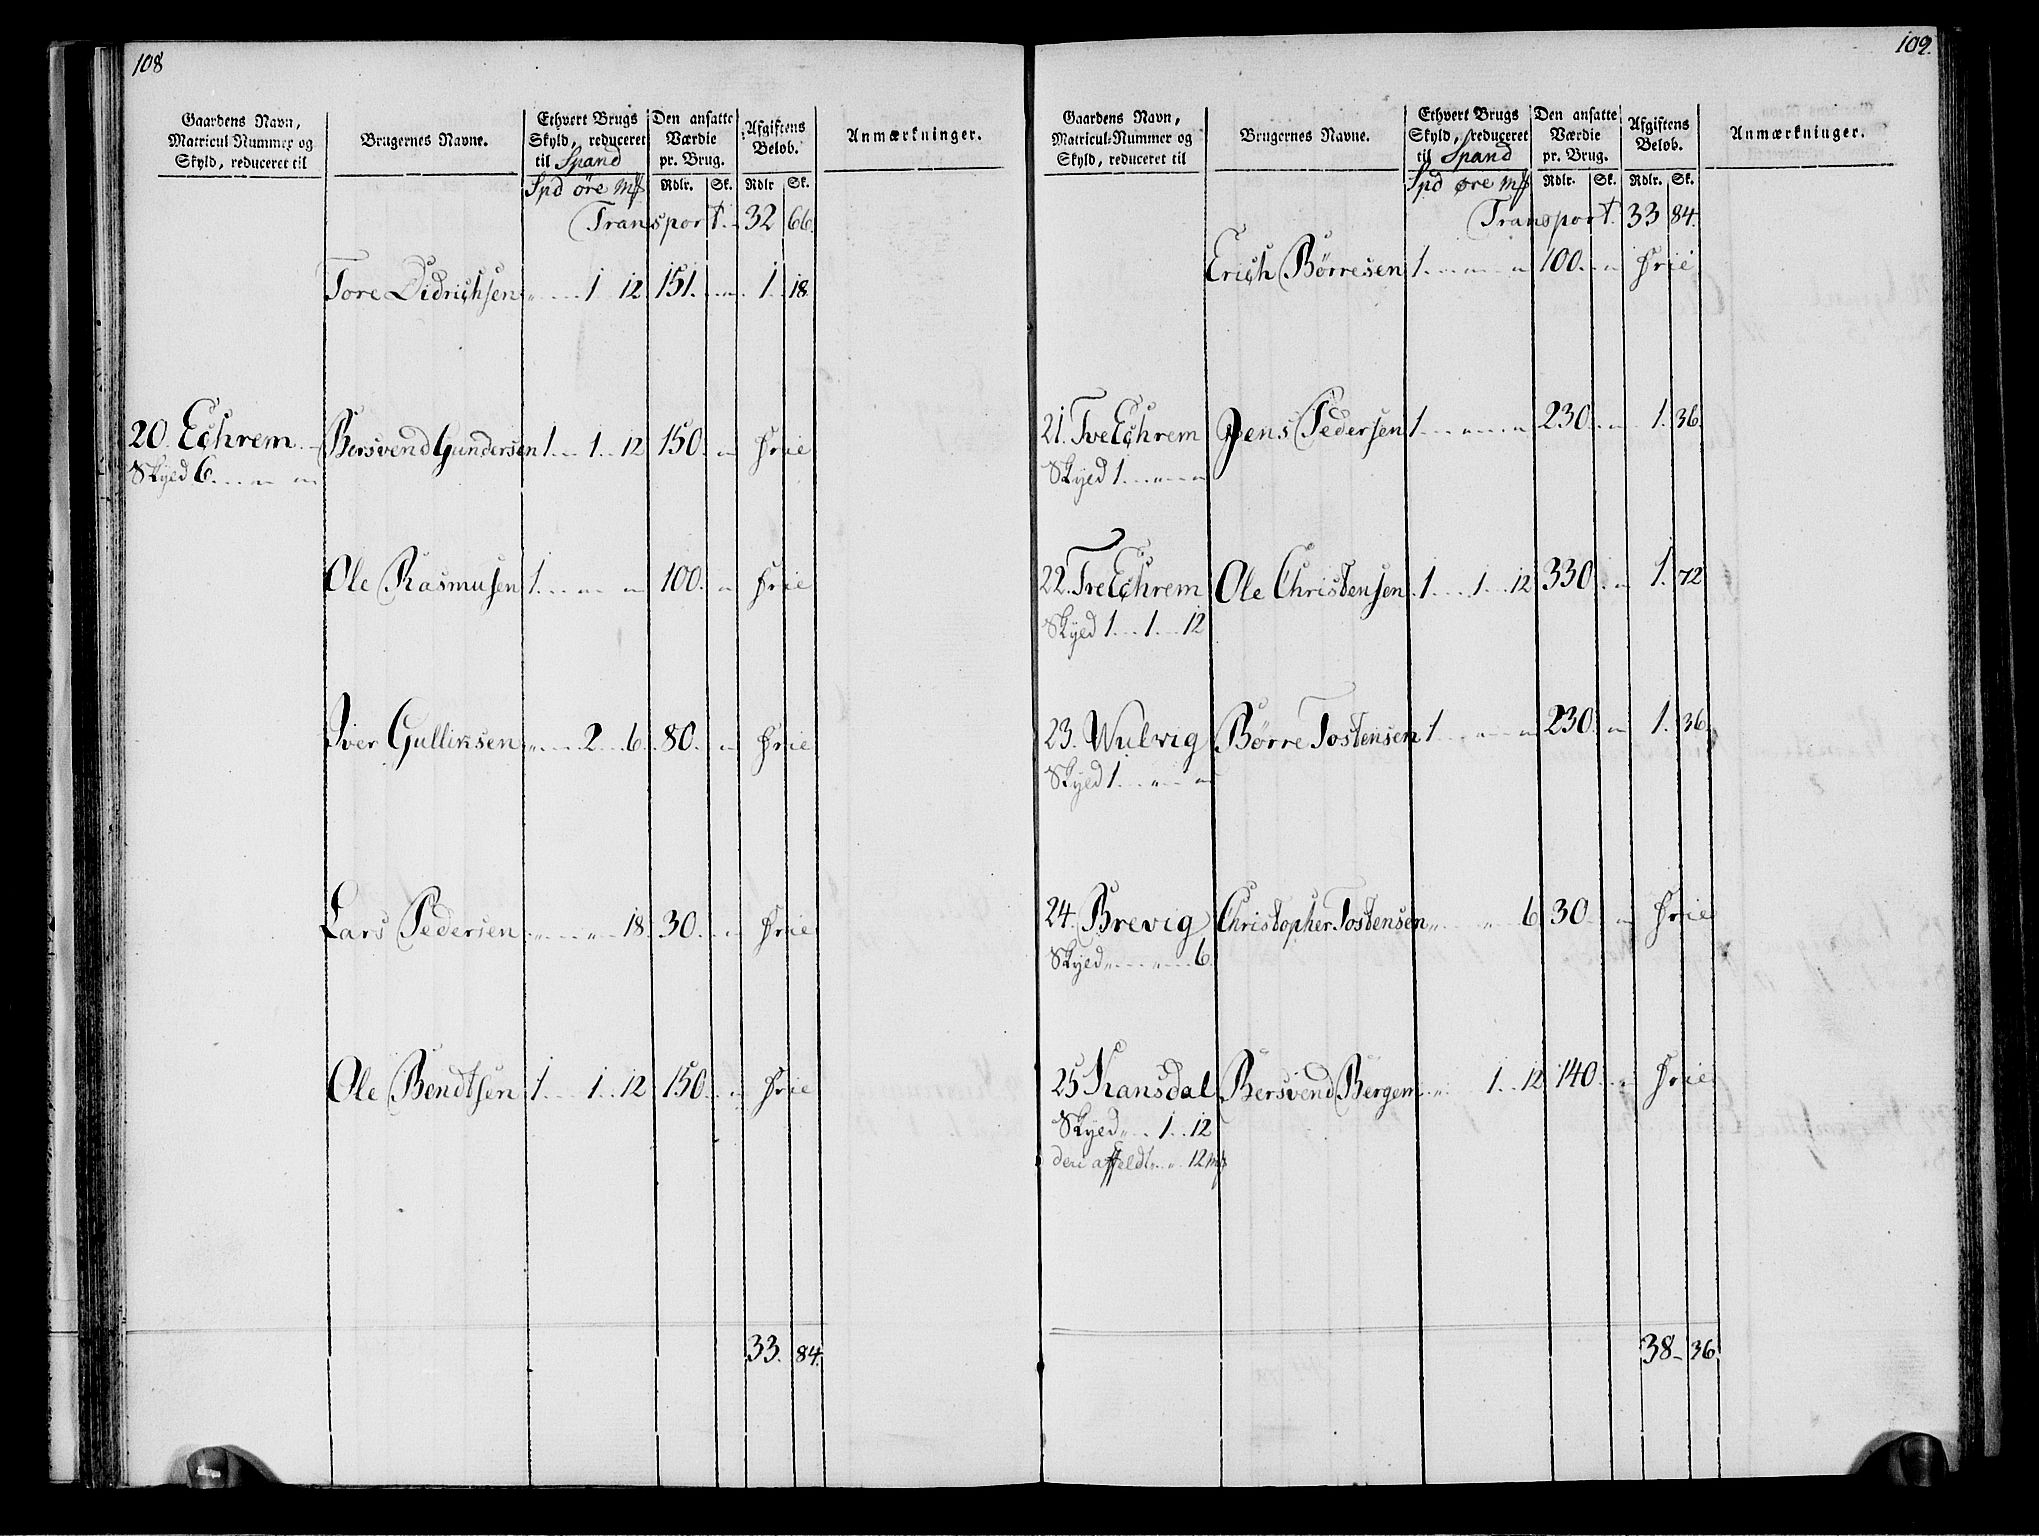 108
Gaardens Navn, Matricul Nummer og Skyld, reduceret til
Brugernes Navne.
Ethvert Brugs Skyld, reduceret til Spand
Den ansatte Værdie pr. Brug.
Afgiftens Beløb.
Anmærkninger.
Spd øre mß Rdlr. Sk. Rdlr Sk.
Transport. 32 66.
Tore Didrichsen " 1 12 151. " 1 18
20. Echrem Bersvend Gundersen 1 1 12 150. " Frie
Skyld 6 " "
Ole Rasmusen 1 " " 100. " Frie
Iver Gulliksen " 2 6 80. " Frie
Lars Pedersen " " 18 30. " Frie
Ole Bendtsen 1 1 12 150 " Frie
33. 84.
109.
Gaardens Navn, Matricul-Nummer og Skyld, reduceret til
Brugernes Navne.
Ethvert Brugs Skyld, reduceret til Spand
Den ansatte Værdie pr. Brug.
Afgiftens Beløb.
Anmærkninger.
Spd øre mß Rdlr. Sk. Rdlr. Sk.
Transport. 33 84.
Erich Börresen 1 " " 100. " Frie
21. Tve Echrem Jens Pedersen 1 " " 230 " 1. 36.
Skyld 1 " "
22. Tve Echrem Ole Christensen 1 1 12 330 " 1. 72
Skyld 1 1 12
23. Wulvig Börre Tostensen 1 " " 230 " 1. 36.
Skyld 1 " "
24. Brevig Christopher Tostensen " " 6 30 " Frie
Skyld " " 6.
25 Hansdal Bersvend Bergem " 1 12 140 " Frie
Skyld " 1 12
deri affeldt " " 12 mß
38 36